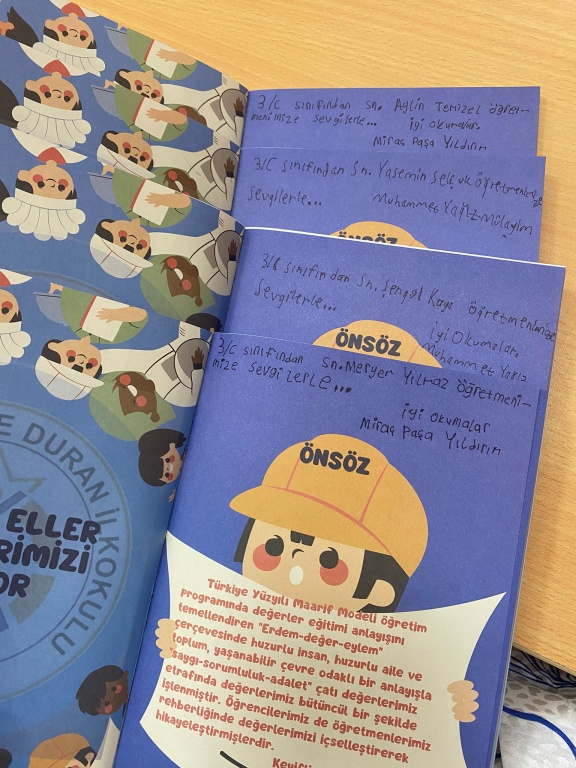 3/C sınıfından sn. Aylin Temizel öğret-
menimize sevgilerle...
iyi okumalar.
Miraç Paşa Yıldırım
3/C sınıfından Sn. Yasemin Selçuk öğretmenimize
sevgilerle...
Muhammet Yağız Mülayim
ÖNSÖZ
3/C sınıfından Sn. Şengül Kaya öğretmenimize
Sevgilerle...
iyi Okumalar,
Muhammet Yağız
ÖNSÖZ
3/C sınıfından Sn. Meryer Yılmaz öğretmeni-
mize sevgilerle...
iyi okumalar
Miraç Paşa Yıldırım
ÖNSÖZ
Türkiye Yüzyılı Maarif Modeli öğretim
programında değerler eğitimi anlayışını
temellendiren "Erdem-değer-eylem"
çerçevesinde huzurlu insan, huzurlu aile ve
toplum, yaşanabilir çevre odaklı bir anlayışla
"saygı-sorumluluk-adalet" çatı değerlerimiz
etrafında değerlerimiz bütüncül bir şekilde
işlenmiştir. Öğrencilerimiz de öğretmenlerimiz
rehberliğinde değerlerimizi içselleştirerek
hikayeleştirmişlerdir.
DURAN İLKOKULU
ELLER